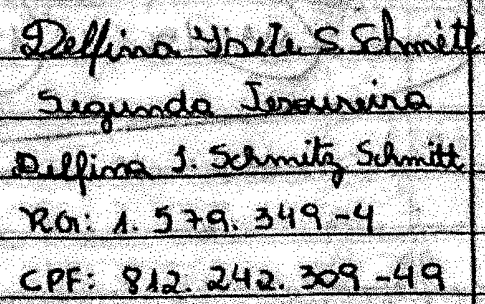 Delfina Gisele S. Schmitt
Segunda Tesoureira
Delfina J. Schmitz Schmitt
RG: 1.579.349-4
CPF: 812.242.309-49